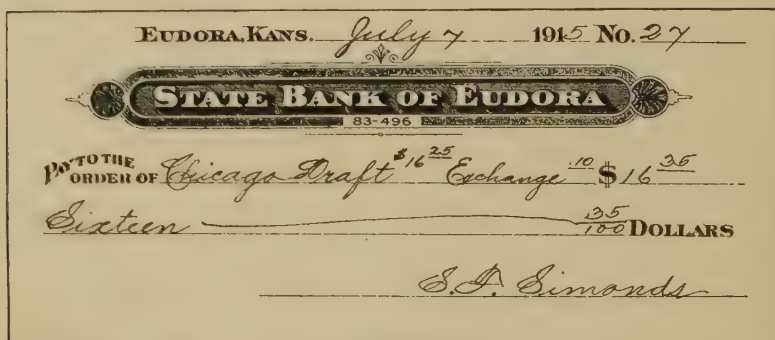 EUDORA, KANS. July 7 1915 No. 27
STATE BANK OF EUDORA
83-496
PAY TO THE ORDER OF Chicago Draft $16 25 Exchange .10 $16 35
Sixteen 35/100 DOLLARS
S. F. Simonds